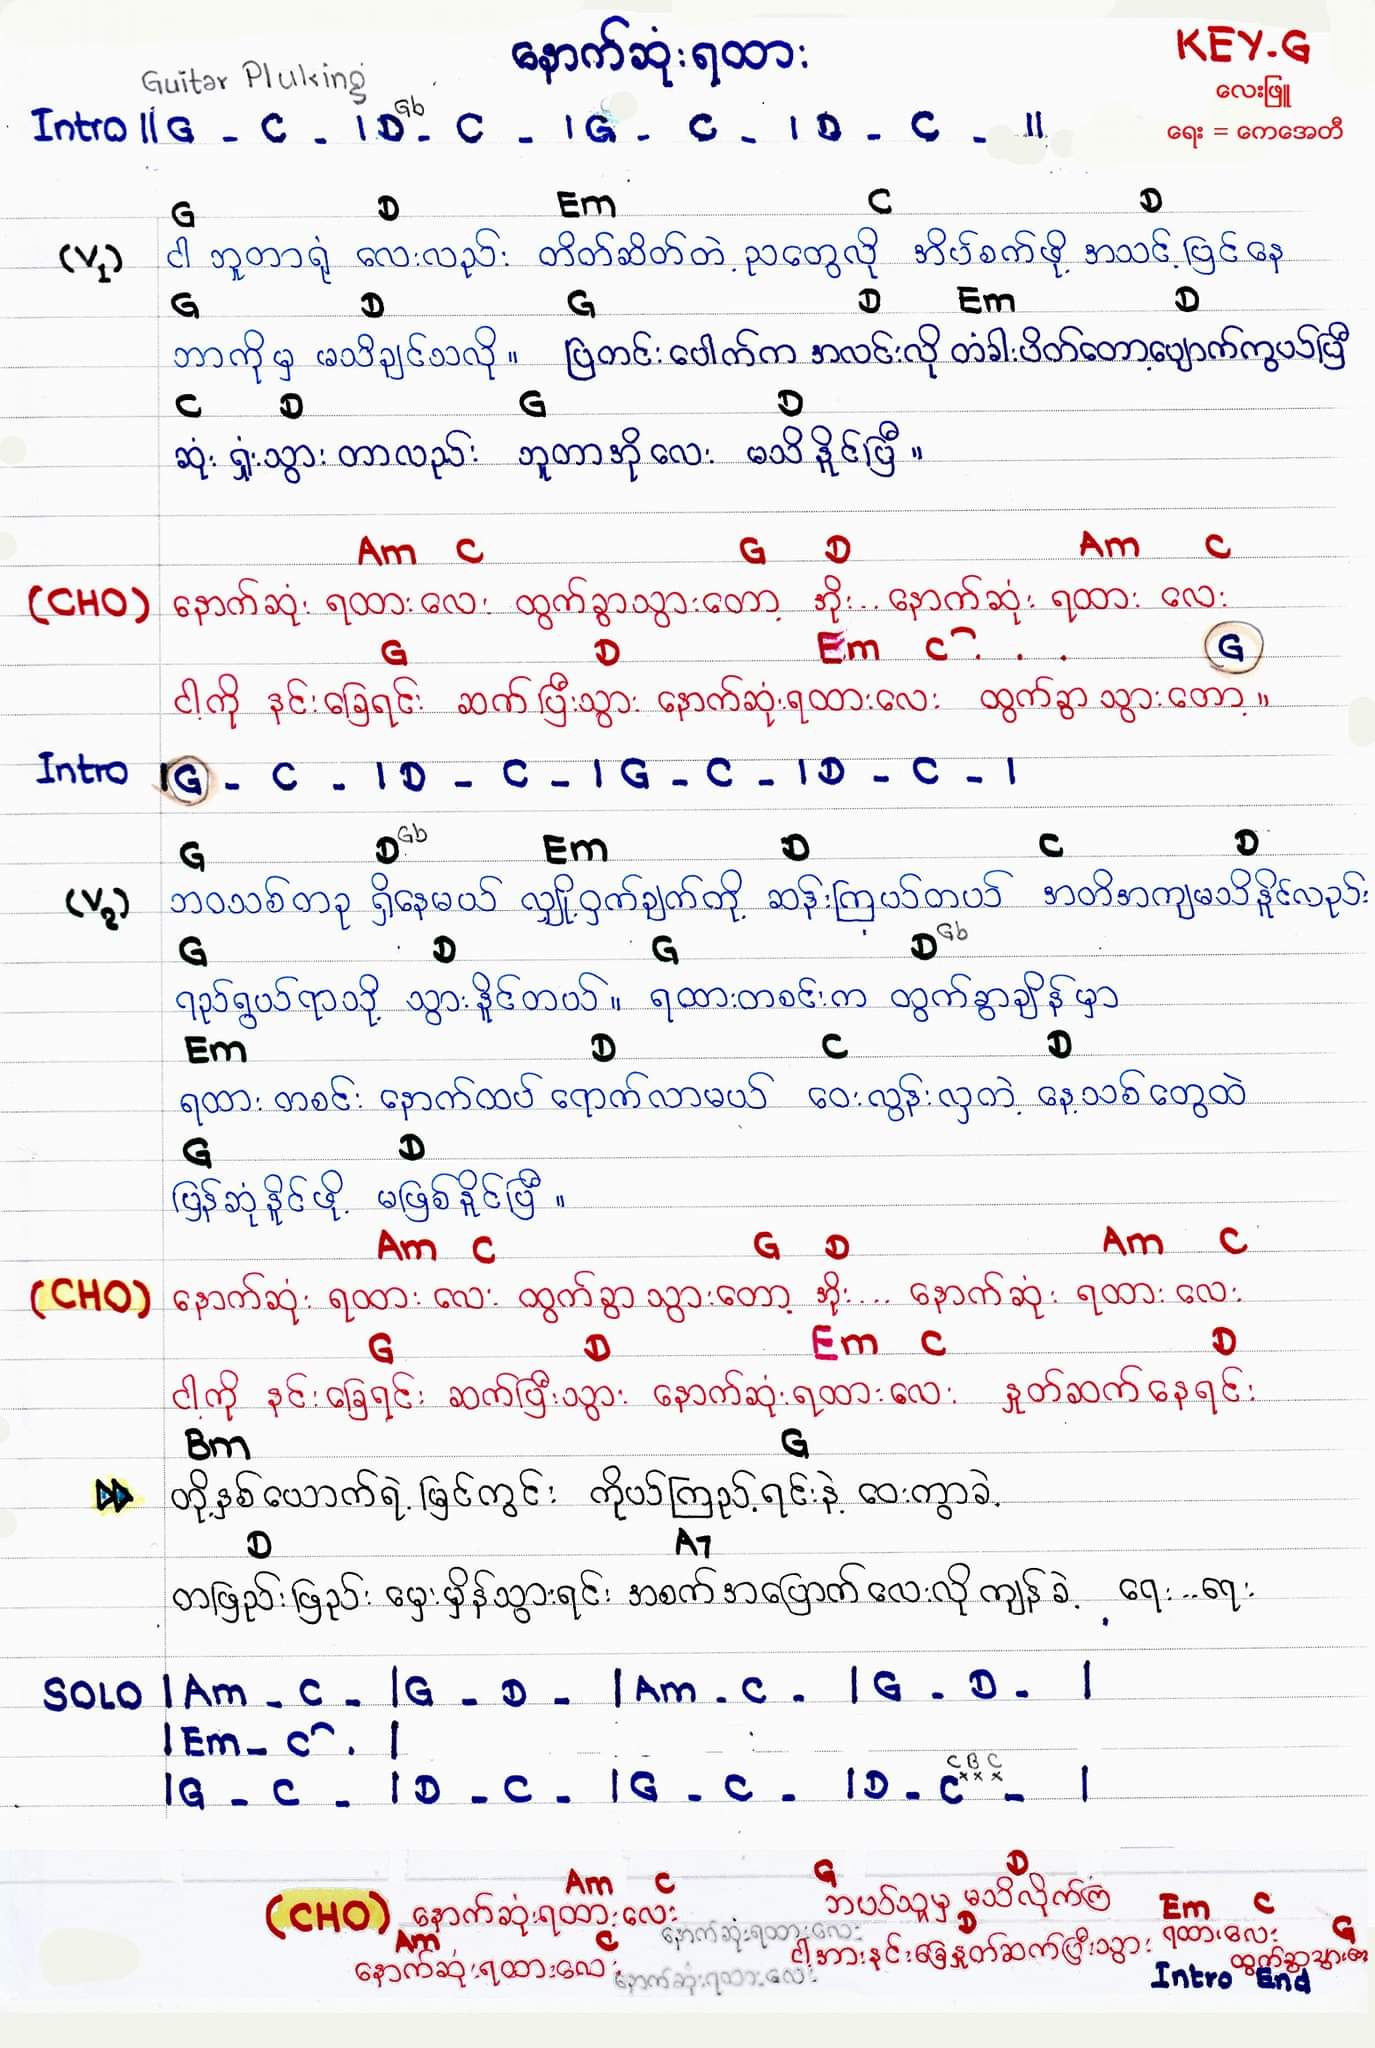 နောက်ဆုံးရထား
KEY-G
Guitar Pluking
လေးဖြူ
Gb
Intro || G - C - | D - C - | G - C - | D - C - ||
ရေး = ကေအေတီ
G D Em C D
(V1) ငါ ဘူတာရုံ လေးလည်း တိတ်ဆိတ်တဲ့ ညတွေလို အိပ်စက်ဖို့ အသင့်ပြင်နေ
G D G D Em D
ဘာကိုမှ မသိချင်သလို။ ပြတင်းပေါက်က အလင်းလို တံခါးပိတ်တော့ပျောက်ကွယ်ပြီ
C D G D
ဆုံးရှုံးသွားတာလည်း ဘူတာအိုလေး မသိနိုင်ပြီ။
Am C G D Am C
(CHO) နောက်ဆုံး ရထားလေး ထွက်ခွာသွားတော့ အိုး.. နောက်ဆုံး ရထား လေး
G D Em C . . . G
ငါ့ကို နင်းခြေရင်း ဆက်ပြီးသွား နောက်ဆုံးရထားလေး ထွက်ခွာသွားတော့။
Intro | G - C - | D - C - | G - C - | D - C - |
G D Gb Em D C D
(V2) ဘဝသစ်တခု ရှိနေမယ် လျှို့ဝှက်ချက်ကို ဆန်းကြယ်တယ် အတိအကျမသိနိုင်လည်း
G D G D Gb
ရည်ရွယ်ရာသို့ သွားနိုင်တယ်။ ရထားတစင်းက ထွက်ခွာချိန်မှာ
Em D C D
ရထား တစင်း နောက်ထပ် ရောက်လာမယ် ဝေးလွန်းလှတဲ့ နေ့သစ်တွေထဲ
G D
ပြန်ဆုံနိုင်ဖို့ မဖြစ်နိုင်ပြီ။
Am C G D Am C
(CHO) နောက်ဆုံး ရထား လေး ထွက်ခွာသွားတော့ အိုး... နောက်ဆုံး ရထား လေး
G D Em C D
ငါ့ကို နင်းခြေရင်း ဆက်ပြီးသွား နောက်ဆုံးရထားလေး နှုတ်ဆက်နေရင်း
Bm G
တို့နှစ်ယောက်ရဲ့မြင်ကွင်း ကိုယ်ကြည့်ရင်းနဲ့ ဝေးကွာခဲ့
D A7
တဖြည်းဖြည်း မှေးမှိန်သွားရင်း အစက်အပြောက်လေးလိုကျန်ခဲ့ ရေး..ရေး
SOLO | Am - C - | G - D - | Am - C - | G - D - |
| Em - C . |
C B C
x x x
| G - C - | D - C - | G - C - | D - C - |
Am C G D
(CHO) နောက်ဆုံးရထားလေး ဘယ်သူမှ မသိလိုက်ပြီ Em C
နောက်ဆုံးရထားလေး
Am C D G
နောက်ဆုံးရထားလေး ငါ့အားနင်းခြေနှုတ်ဆက်ပြီးသွား ရထားလေး
နောက်ဆုံးရထားလေး
Intro End